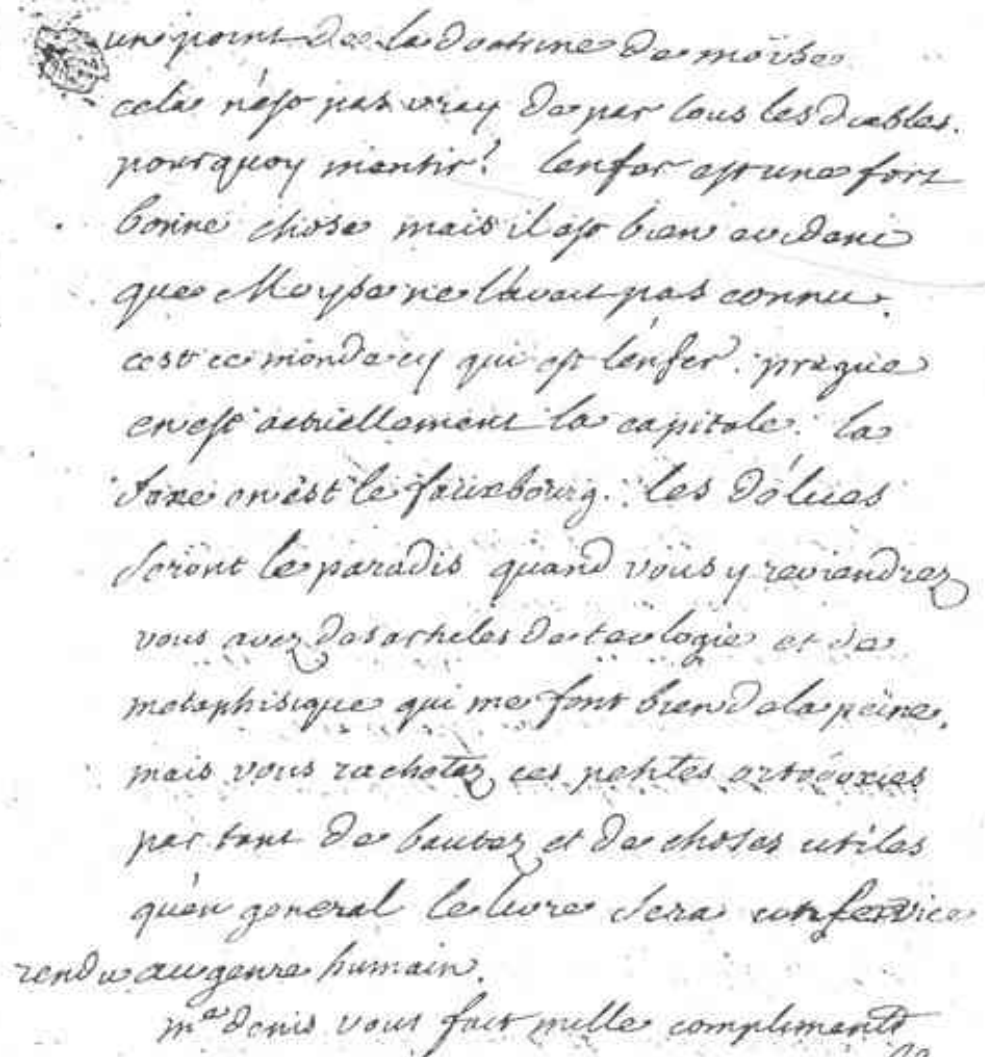 un point de la doctrine de moyse
cela n'est pas vray de par tous les diables.
pourquoy mentir? lenfer est une fort
bonne chose mais il est bien evident
que Moyse ne l'avait pas connu.
cest ce monde cy qui est lenfer. prague
en est actuellement la capitale. la
saxe en est le fauxbourg. les délices
seront le paradis quand vous y reviendrez
vous avez des articles de teologie et de
metaphisique qui me font bien de la peine.
mais vous rachetez ces petites ortodoxies
par tant de bautez et de choses utiles
qu'en general le livre sera un service
rendu au genre humain.
me denis vous fait mille compliments